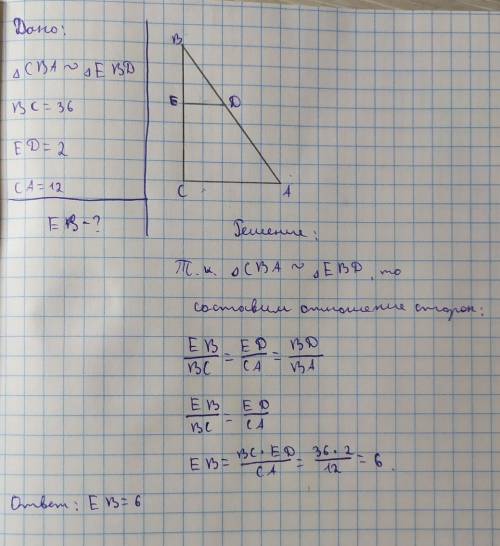 Дано:
△CBA ~ △EBD
BC = 36
ED = 2
CA = 12
EB - ?
B
E
D
C
A
Решение:
Т.к. △CBA ~ △EBD, то
составим отношение сторон:
EB/BC = ED/CA = BD/BA
EB/BC = ED/CA
EB = BC • ED/CA = 36 • 2/12 = 6.
Ответ: EB = 6